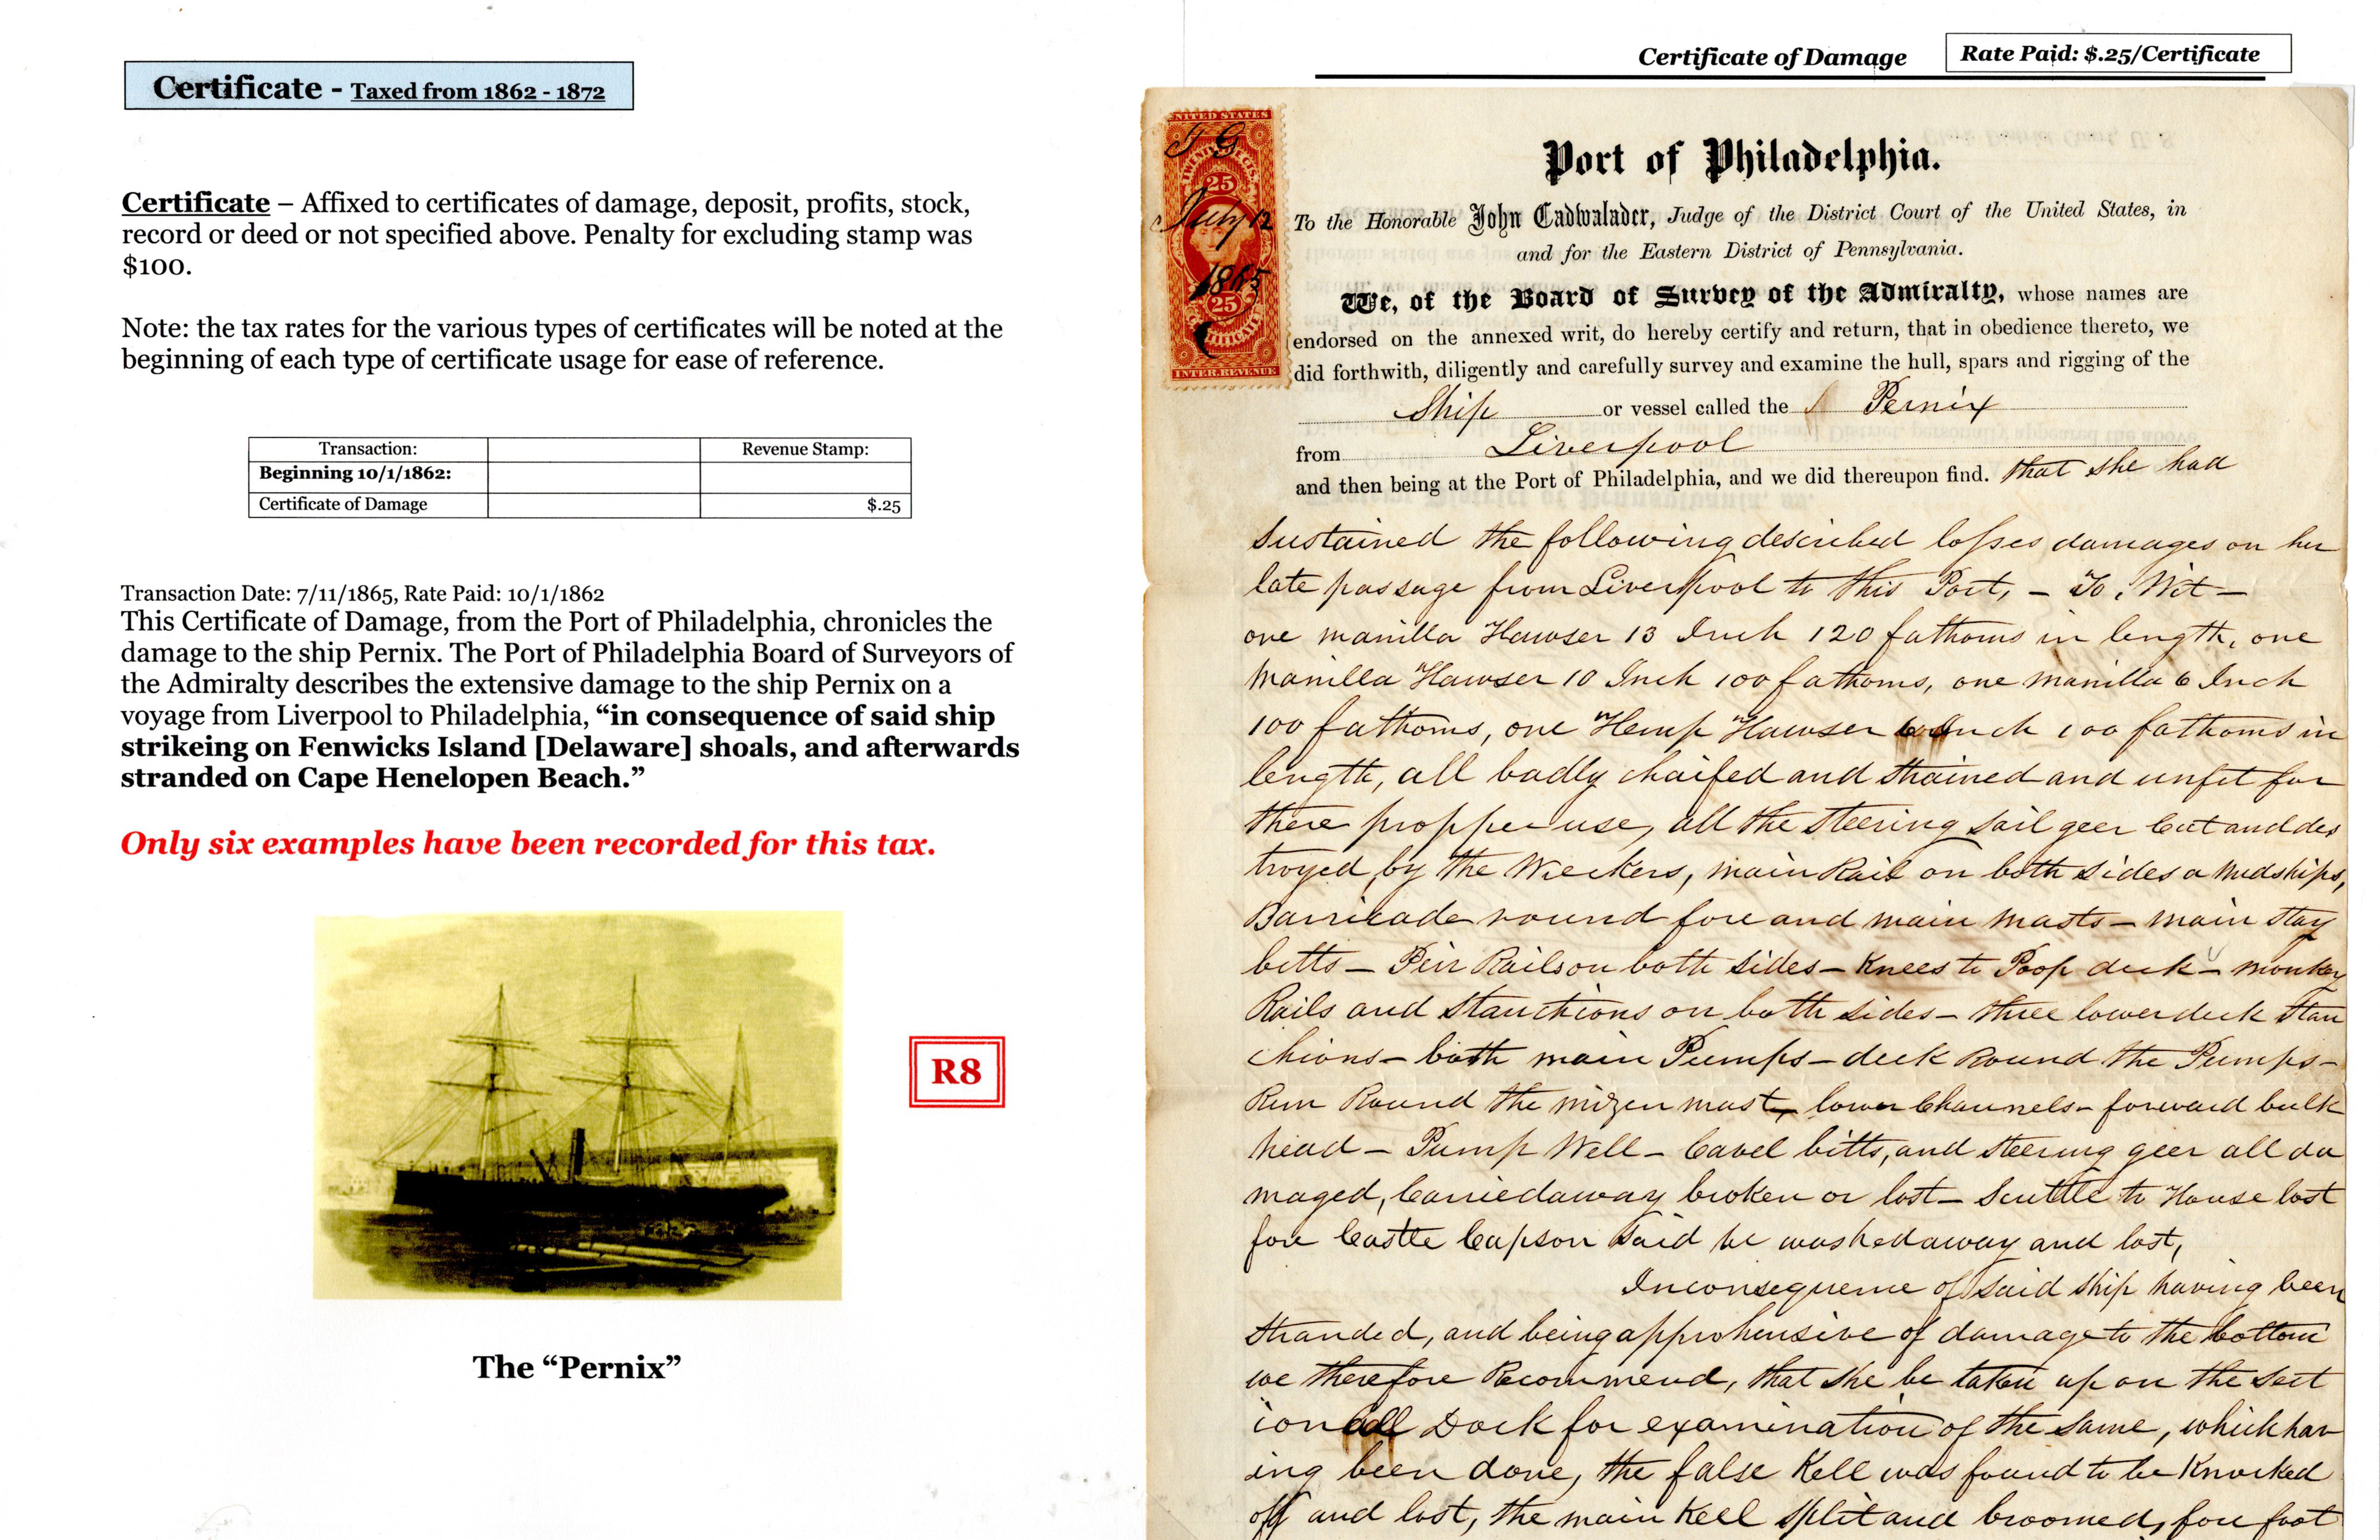 Certificate - Taxed from 1862 - 1872
Certificate – Affixed to certificates of damage, deposit, profits, stock,
record or deed or not specified above. Penalty for excluding stamp was
$100.
Note: the tax rates for the various types of certificates will be noted at the
beginning of each type of certificate usage for ease of reference.
Transaction: Revenue Stamp:
Beginning 10/1/1862:
Certificate of Damage $.25
Transaction Date: 7/11/1865, Rate Paid: 10/1/1862
This Certificate of Damage, from the Port of Philadelphia, chronicles the
damage to the ship Pernix. The Port of Philadelphia Board of Surveyors of
the Admiralty describes the extensive damage to the ship Pernix on a
voyage from Liverpool to Philadelphia, “in consequence of said ship
strikeing on Fenwicks Island [Delaware] shoals, and afterwards
stranded on Cape Henelopen Beach.”
Only six examples have been recorded for this tax.
R8
The “Pernix”
Certificate of Damage
Rate Paid: $.25/Certificate
UNITED STATES
25
July 12
1865
25
INTER. REVENUE
Port of Philadelphia.
To the Honorable John Cadwalader, Judge of the District Court of the United States, in
and for the Eastern District of Pennsylvania.
We, of the Board of Survey of the Admiralty, whose names are
endorsed on the annexed writ, do hereby certify and return, that in obedience thereto, we
did forthwith, diligently and carefully survey and examine the hull, spars and rigging of the
Ship or vessel called the Pernix
from Liverpool
and then being at the Port of Philadelphia, and we did thereupon find. that she had
Sustained the following described losses damages on her
late passage from Liverpool to this Port, – To, Wit –
one manilla Hawser 13 Inch 120 fathoms in length, one
Manilla Hawser 10 Inch 100 fathoms, one manilla 6 Inch
100 fathoms, one Hemp Hawser Inch 100 fathoms in
length, all badly chaifed and strained and unfit for
there propper use, all the steering sail geer Cut and des
troyed, by the Wreckers, main Rail on both sides a midships,
Barricade round fore and main masts – main stay
bitts – Pin Rails on both sides – Knees to Poop deck – monkey
Rails and stanctions on both sides – three lower deck stan
chions – both main Pumps – deck Round the Pumps –
Rim Round the mizen mast, lower Channels – forward bulk
head – Pump Well – Cavel bitts, and steering geer all da
maged, Carried away broken or lost – Scuttle to House lost
fore Castle Capson said be washed away and lost,
Inconsequence of said ship having been
stranded, and being apprehensive of damage to the bottom
we therefore Recommend, that she be taken up on the Sect
ionall Dock for examination of the same, which hav
ing been done, the false Kell was found to be Knocked
off and lost, the main Keel split and broomed, fore foot